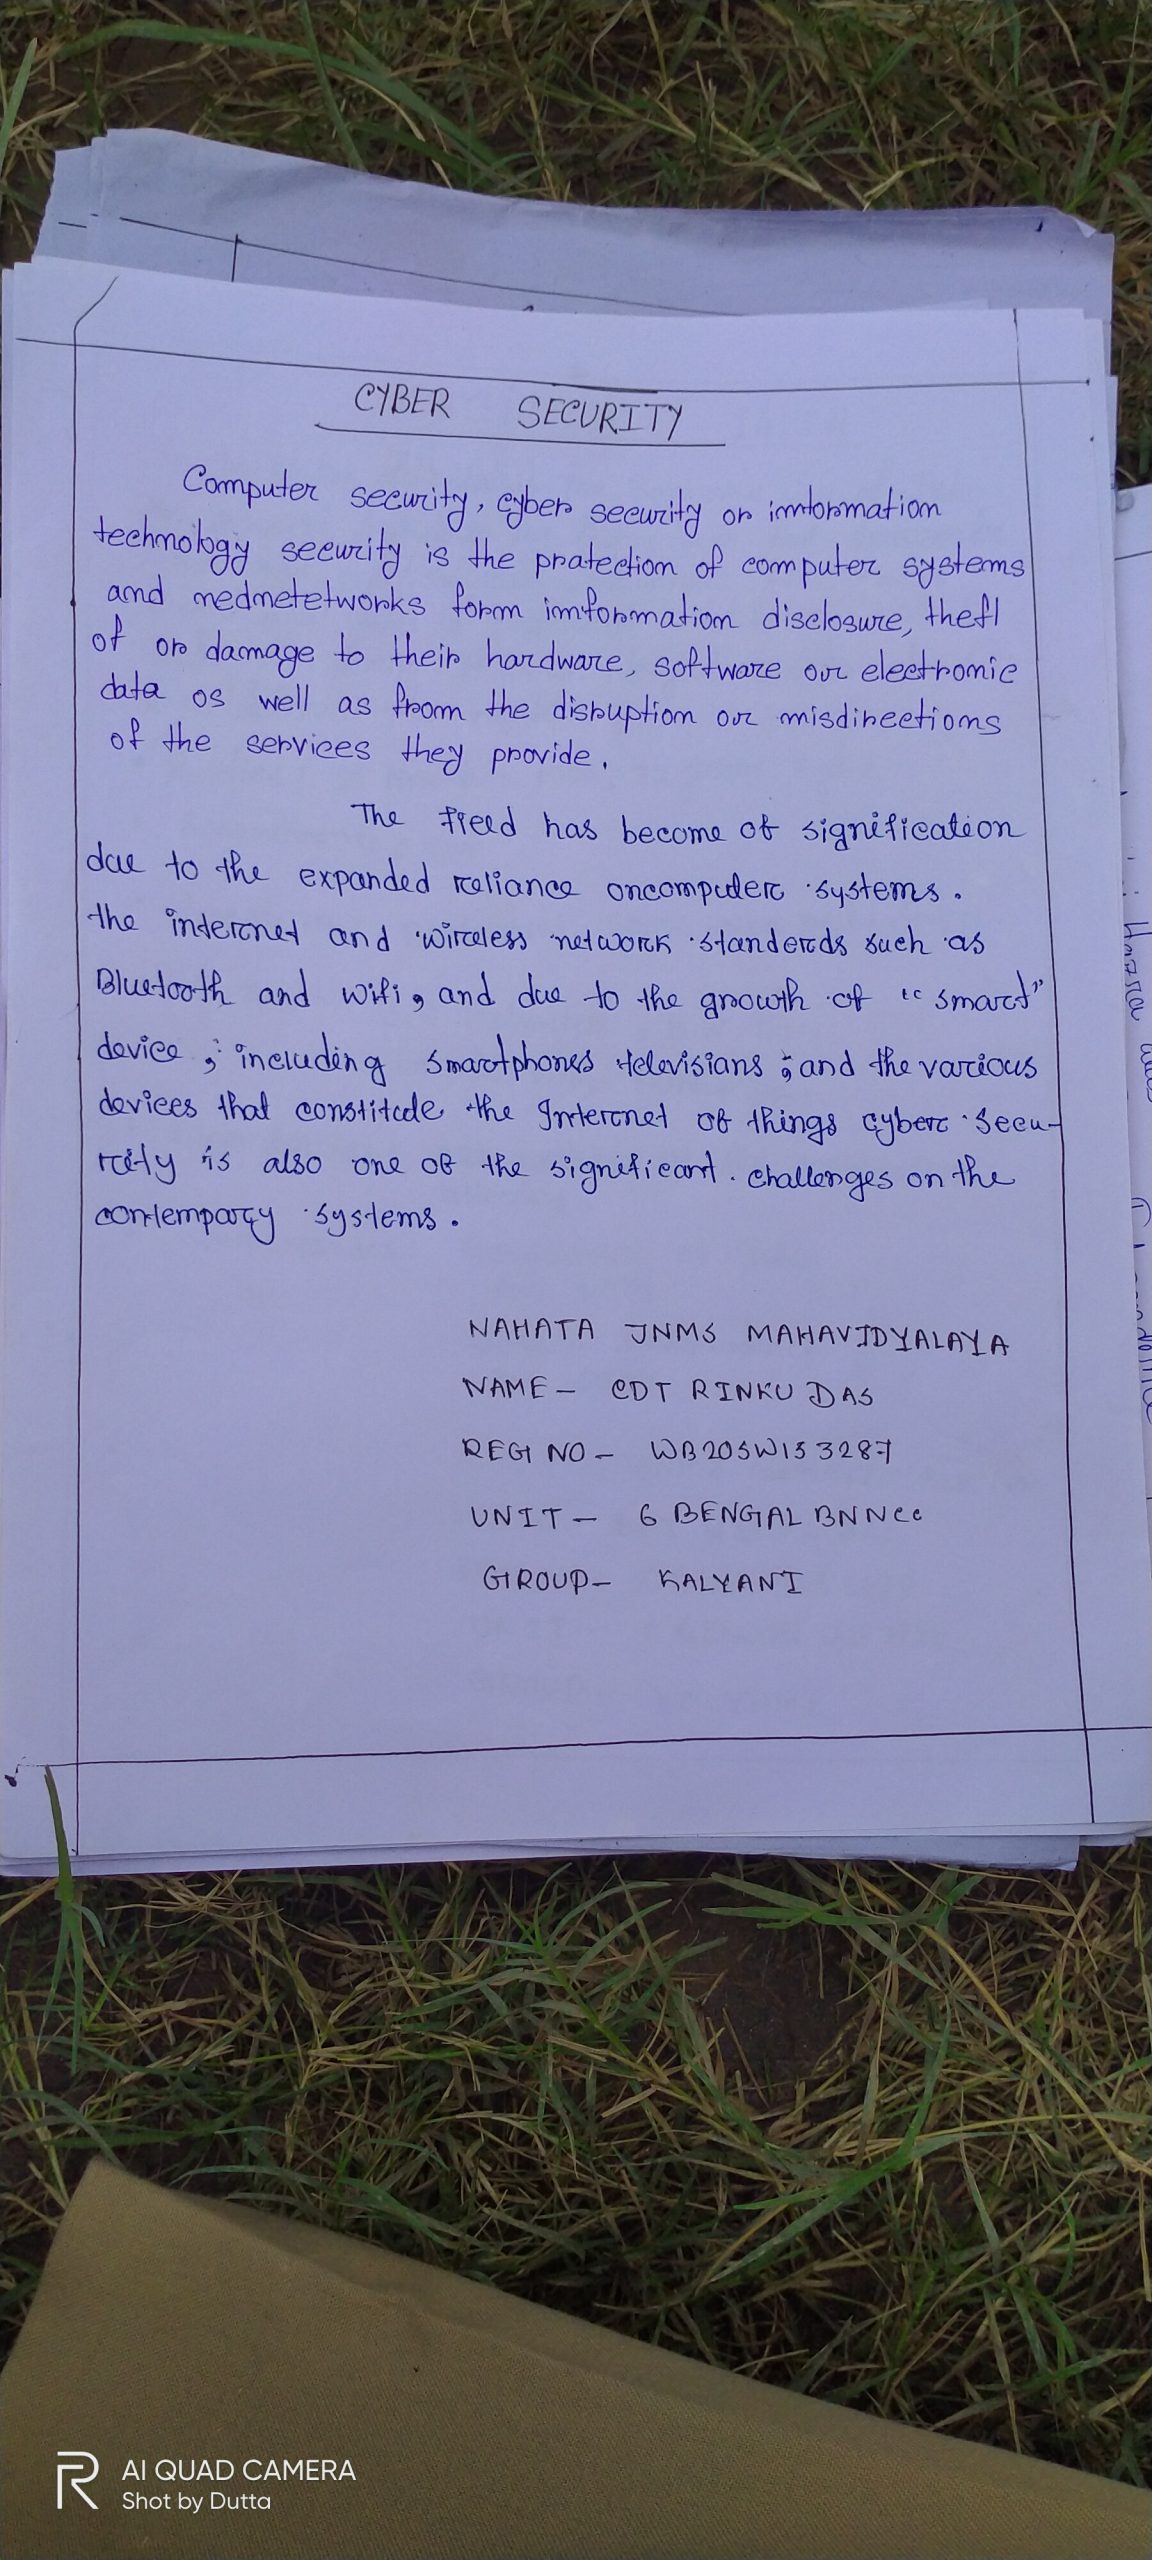 CYBER SECURITY
Computer security, cyber security or imformation
technology security is the pratection of computer systems
and nedmetetworks form imformation disclosure, theft
of or damage to their hardware, software our electronic
data os well as from the disruption our misdirections
of the services they provide.
The field has become of signification
due to the expanded reliance oncomputer systems.
the internet and wireless network standerds such as
Bluetooth and wifi, and due to the growth of "smart"
device, including smartphones televisians; and the various
devices that constitute the Internet of things cyber secu-
rity is also one of the significant. challenges on the
contempary systems.
NAHATA JNMS MAHAVIDYALAYA
NAME - CDT RINKU DAS
REG NO - WB20SW153287
UNIT - 6 BENGAL BN NCC
GROUP - KALYANI
Hazra
AI QUAD CAMERA
Shot by Dutta